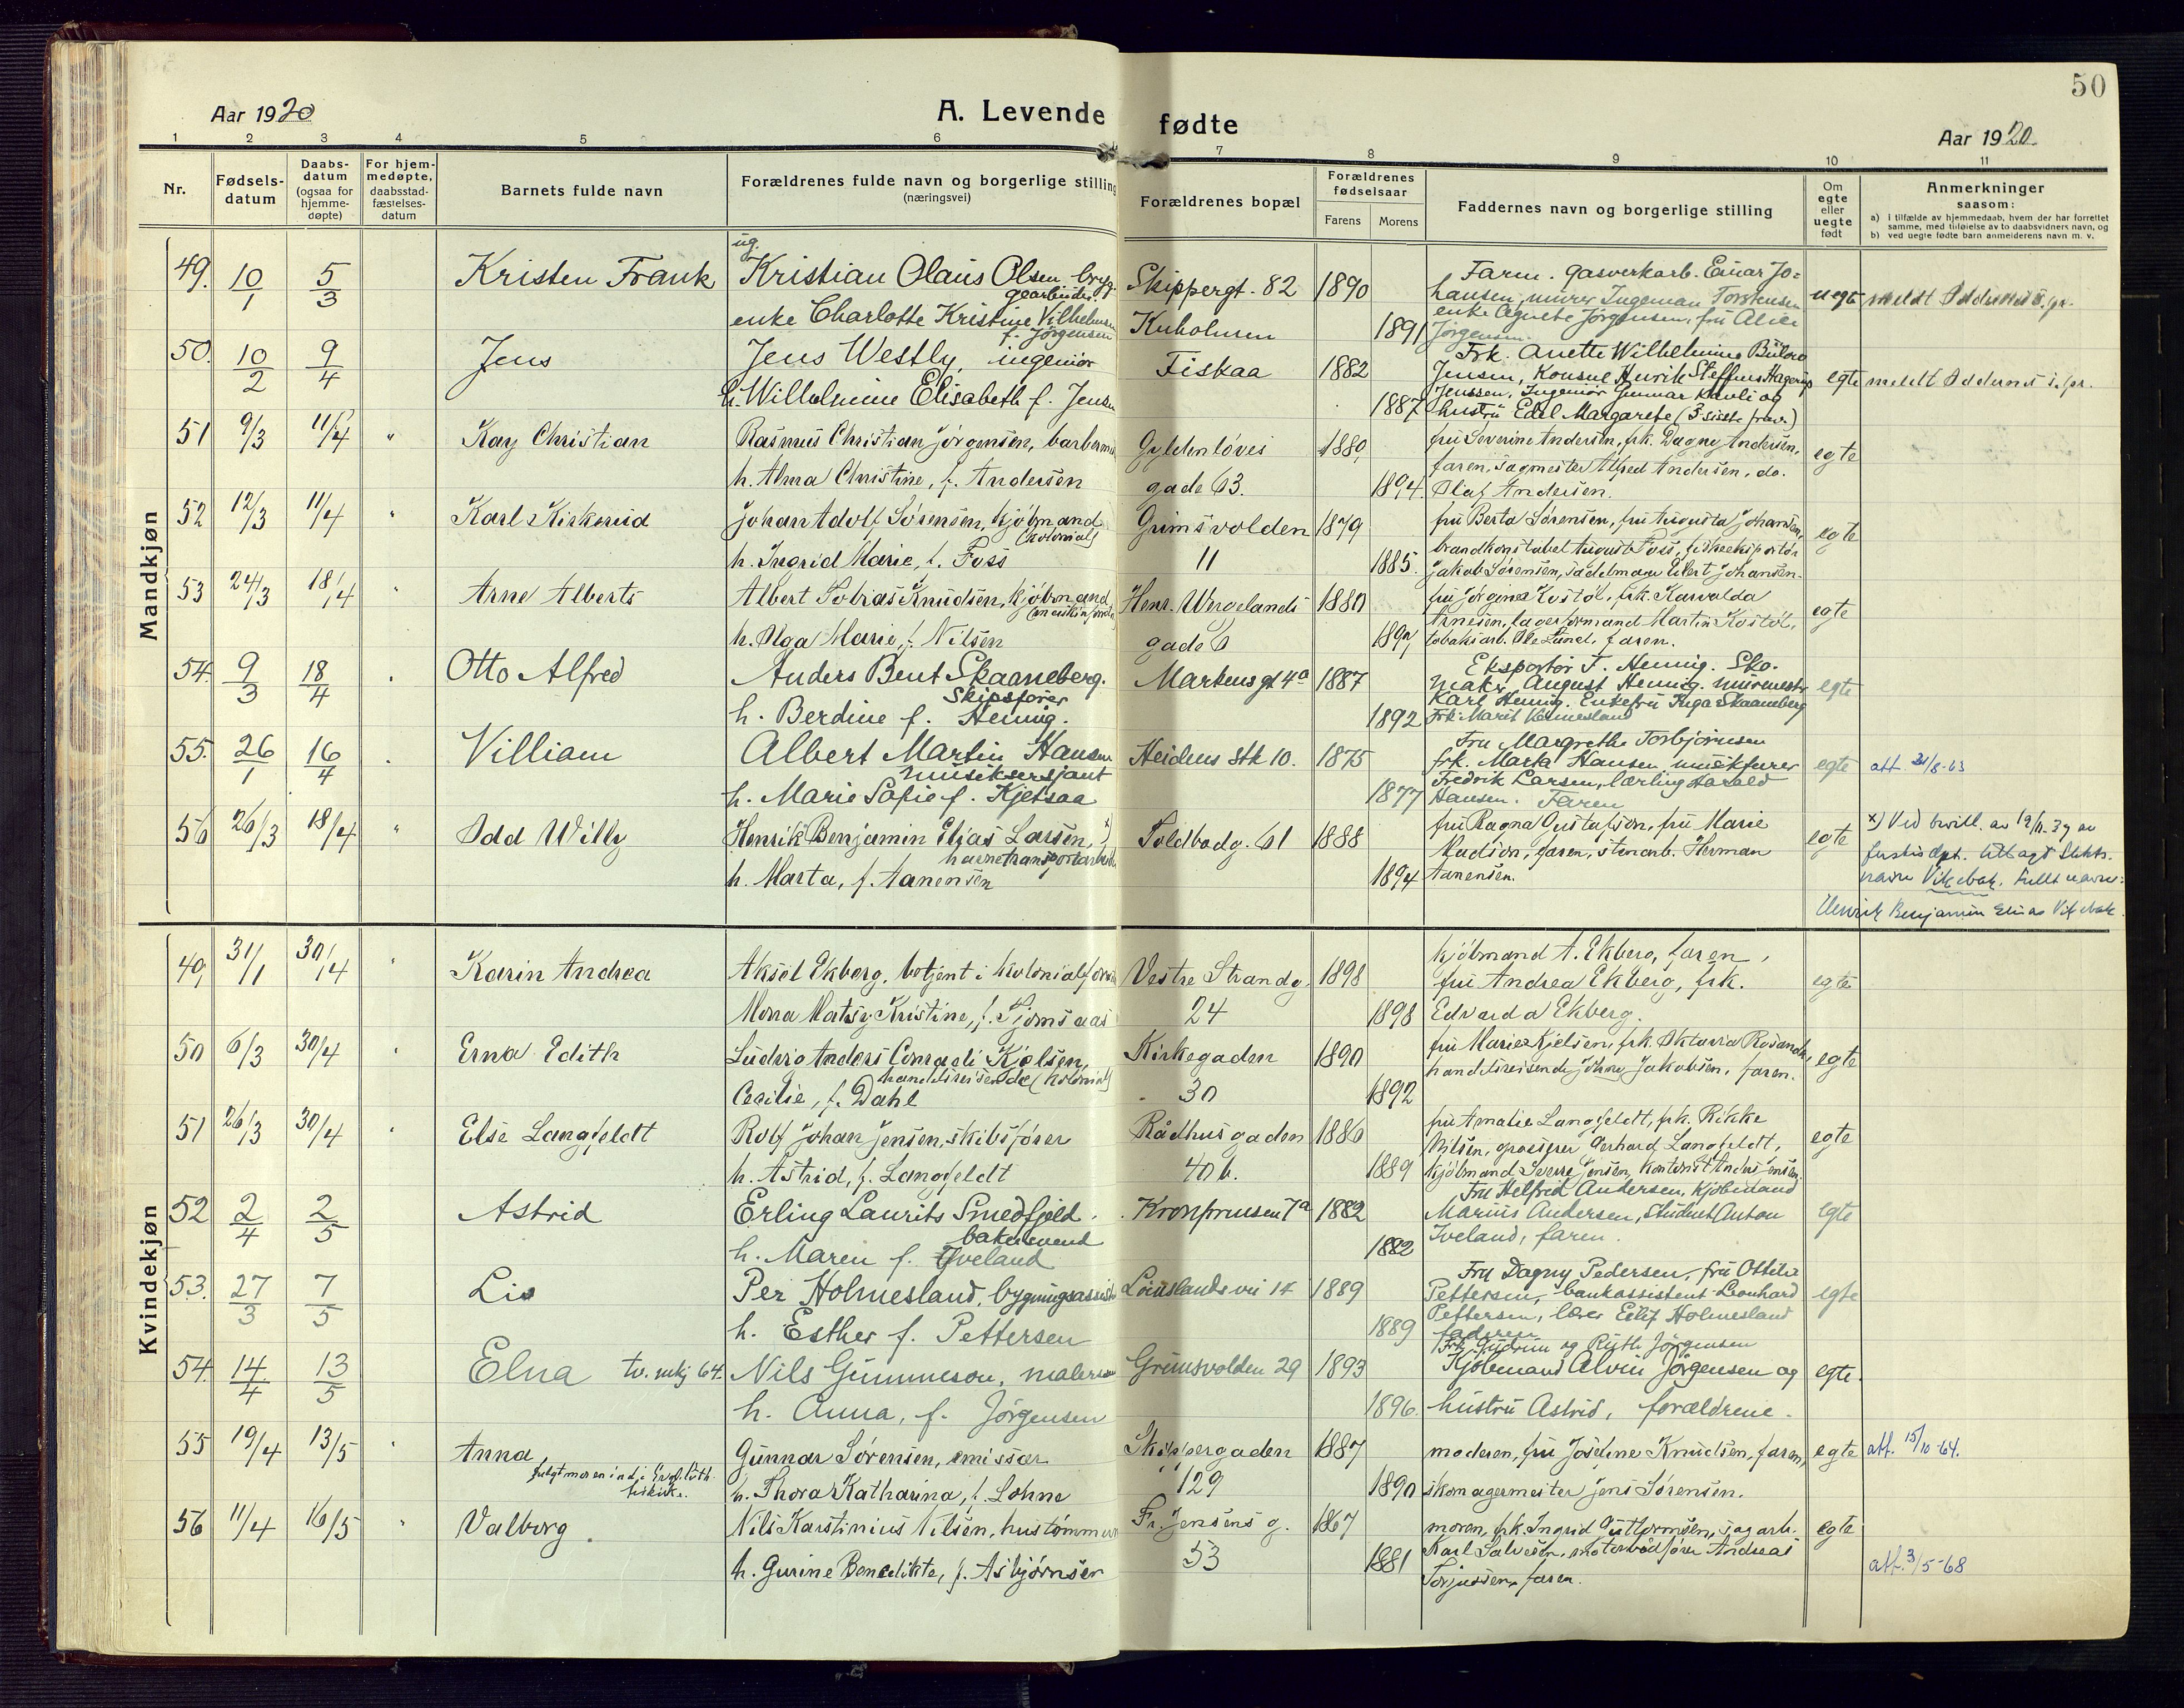 50
Aar 1920 A. Levende fødte Aar 1920
1 2 3 4 5 6 7 8 9 10 11
Nr. Fødsels-datum Daabs-datum (ogsaa for hjemme-døpte) For hjem-medøpte, daabsstad-fæstelses-datum Barnets fulde navn Forældrenes fulde navn og borgerlige stilling (næringsvei) Forældrenes bopæl Forældrenes fødselsaar Farens Morens Faddernes navn og borgerlige stilling Om egte eller uegte født Anmerkninger saasom:
a) i tilfælde av hjemmedaab, hvem der har forrettet samme, med tilføielse av to daabsvidners navn, og
b) ved uegte fødte barn anmelderens navn m. v.
Mandkjøn
ug.
49. 10/1 5/3 Kristen Frank Kristian Olaus Olsen, bryg- Skippergt. 82 1890 Faren. gasverkarb. Einar Jo-
gearbeider hansen, murer Ingeman Torstensen uegte meldt Oddernes
enke Charlotte Kristine Vilhelmsen Kuholmen 1891 enke Agnete Jørgensen, fru Alice
f. Jørgensen Jørgensen
50. 10/2 9/4 Jens Jens Westly, ingeniør Fiskaa 1882 Frk. Anette Wilhelmine Bülow
Jensen, Konsul Henrik Steffens Hagerup egte meldt Oddernes s.pr.
h. Wilhelmine Elisabeth f. Jensen 1887 Jenssen, Ingeniør Gunnar Kavli og
hustru Edel Margarete (3 sidste frav.)
51 9/3 11/4 " Kay Christian Rasmus Christian Jørgensen, barberm Gyldenløves 1880, fru Severine Andersen, frk. Dagny Andersen, egte
h. Alma Christine, f. Andersen gade 63. 1894 faren, sagmester Alfred Andersen, do.
Olaf Andersen.
52 12/3 11/4 " Karl Kirkerud Johan Adolf Sørensen, kjøbmand Grimsvolden 1879 fru Berta Sørensen, fru Augusta Johansen, egte
(kolonial)
h. Ingrid Marie, f. Foss 11 1885. brandkonstabel August Foss, fiskeeksportør
Jakob Sørensen, sadelmager Eilert Johansen.
53 24/3 18/4 " Arne Alberts Albert Tobias Knudsen, kjøbmand Henr. Wergelands 1880 fru Jørgine Kostøl, frk. Karvalda egte
h. Olga Marie, f. Nilsen gade 6 Arnesen, lagerformand Martin Kostøl,
tobaksarb. Ole Lund, faren.
54. 9/3 18/4 Otto Alfred Anders Bent Skaaneberg. Martensgt 4a 1887 Eksportør T. Hennig. Sko-
Skipsfører maker August Hennig. murmester egte
h. Berdine f. Hennig. 1892 Karl Hennig. Enkefru Inga Skaaneberg
Frk. Marit
55. 26/1 16/4 Villiam Albert Martin Hansen Heidens Stk 10. 1875 Fru Margrethe Torbjørnsen
musiksersjant frk. Marta Hansen, musikfurer egte att 21/8-63
h. Marie Sofie f. Kjetsaa 1877 Fredrik Larsen, lærling Harald
Hansen. Faren
56 26/3 18/4 " Odd Willy Henrik Benjamin Elias Larsen, x) Toldbodg. 61 1888 fru Ragna Gustafson, fru Marie egte x) Ved bevill. av 19/11-39 av
Madson, faren, stenarb. Herman justisdpt. antagt slekts-
h. Marta, f. Aanensen 1894 Aanensen. navn Vikebak. Fullt navn:
Henrik Benjamin Elias Vikebak.
Kvindekjøn
49, 31/1 30/4 " Karin Andrea Aksel Ekberg, betjent i kolonialforr Vestre Strandg. 1898 kjøbmand A. Ekberg, faren,
fru Andrea Ekberg, frk. egte
Mona Matsy Kristine, f. Tjomsaas 24 1898 Edvarda Ekberg.
50 6/3 30/4 " Erna Edith Ludvig Anders Conradi Kjelsen, Kirkegaden 1890 fru Marie Kjelsen, frk. Oktavia Rosando, egte
handelsreisende (kolonial) handelsreisende Johan Jakobsen, faren.
Cecilie, f. Dahl 30 1892
51 26/3 30/4 " Else Langfeldt Rolf Johan Jensen, skibsfører Rådhusgaden 1886 fru Amalie Langfeldt, frk. Rikke egte
Nilsen, grosserer Gerhard Langfeldt,
h. Astrid, f. Langfeldt 40b. 1889 kjøbmand Sverre Jensen, kontorist Anders Jensen,
52 2/4 2/5 Astrid Erling Laurits Smedfjeld. Kronprinsen 7a 1882 Fru Helfrid Andersen, Kjøbmand
Marius Andersen, Student Anton egte
h. Maren f. Iveland 1882 Iveland, faren.
53. 27/3 7/5 Lis Per Holmesland, bygningsassist Löiuslands vei 14 1889 Fru Dagny Pedersen, fru Ottilie
Pettersen, bankassistent Leonhard egte
h. Esther f. Pettersen 1889 Pettersen, lærer Eilif Holmesland
faderen
54. 14/4 13/5 Elna tv. mkj 64. Nils Gummeson, maler Grimsvolden 29 1893 Frk. Gudrun og Ruth Jørgensen
Kjøbmand Alvin Jørgensen og egte.
h. Anna, f. Jörgensen 1896. hustru Astrid, forældrene.
55 19/4 13/5 " Anna Gunnar Sørensen, emissær Skippergaden 1887 moderen, fru Josefine Knudsen, faren, egte att. 15/10-64.
fulgt moren ind i Evgl. luth.
frikirke. h. Thora Katharina, f. Lohne 129 1890 skomagermester Jens Sørensen.
56 11/4 16/5 " Valborg. Nils Karstinius Nilsen, hustømmer Fr. Jensens g. 1867 moren, frk. Ingrid Guttormsen, sagarb. egte
h. Gurine Benedikte, f. Asbjørnsen 53 1881 Karl Salvesen, motorbådfører Andreas att. 3/5-68
Torjussen, faren.